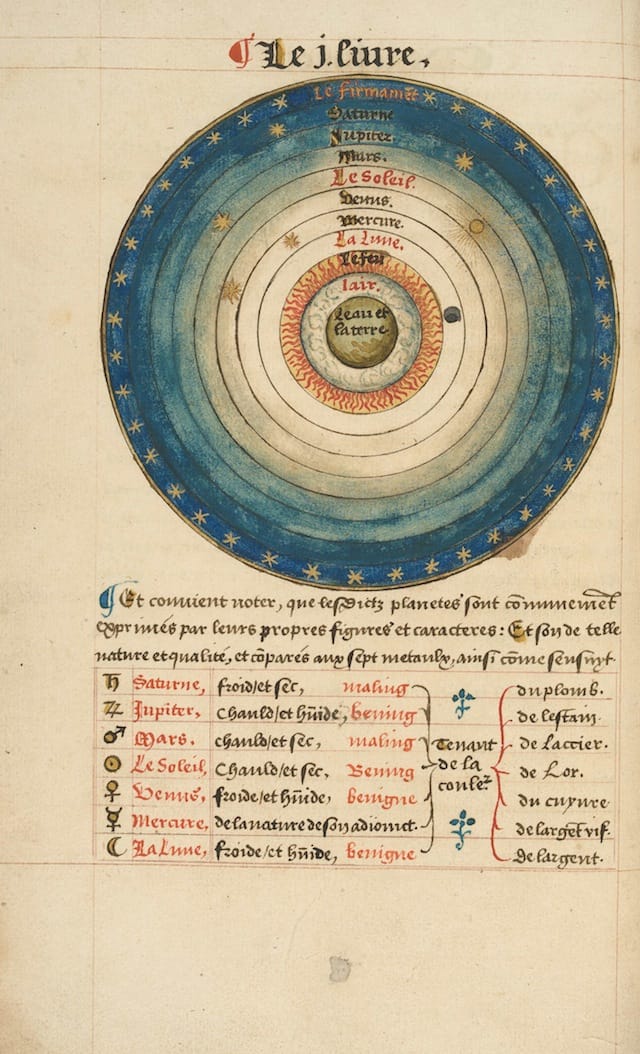 ¶ Le j. liure.
Le firmamẽt
Saturne
Jupiter.
Mars.
Le Soleil.
Venus.
Mercure.
La Lune.
Le feu
lair.
Leau et
la terre.
¶ Et conuient noter, que lesdictz planetes sont cõmunemẽt
exprimés par leurs propres figures et caracteres: Et son de telle
nature et qualité, et cõparés aux sept metaulx, ainsi cõme sensuyt.
♄ Saturne, froid/et sec, maling du plomb.
♃ Jupiter, Chauld/et hũide, bening de lestain.
♂ Mars. chauld/et sec, maling Tenant de Laccier.
☉ Le Soleil, Chauld/et sec, Bening de la de Lor.
♀ Venus, froide/et hũide, benigne couler du cuyure
☿ Mercure, de la nature de son adionict. de largẽt vif.
☾ La Lune, froide/et hũide, benigne de largent.